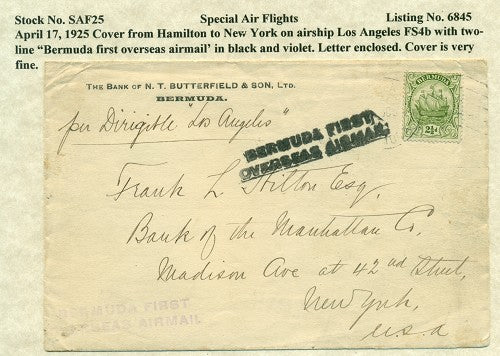 Stock No. SAF25 Special Air Flights Listing No. 6845
April 17, 1925 Cover from Hamilton to New York on airship Los Angeles FS4b with two-
line “Bermuda first overseas airmail’ in black and violet. Letter enclosed. Cover is very
fine.
THE BANK OF N. T. BUTTERFIELD & SON, LTD.
BERMUDA.
per Dirigible "Los Angeles"
BERMUDA FIRST
OVERSEAS AIRMAIL
BERMUDA
2½d
Frank L. Hilton Esq.
Bank of the Manhattan Co.
Madison Ave at 42nd Street,
New York,
U.S.A
BERMUDA FIRST
OVERSEAS AIRMAIL